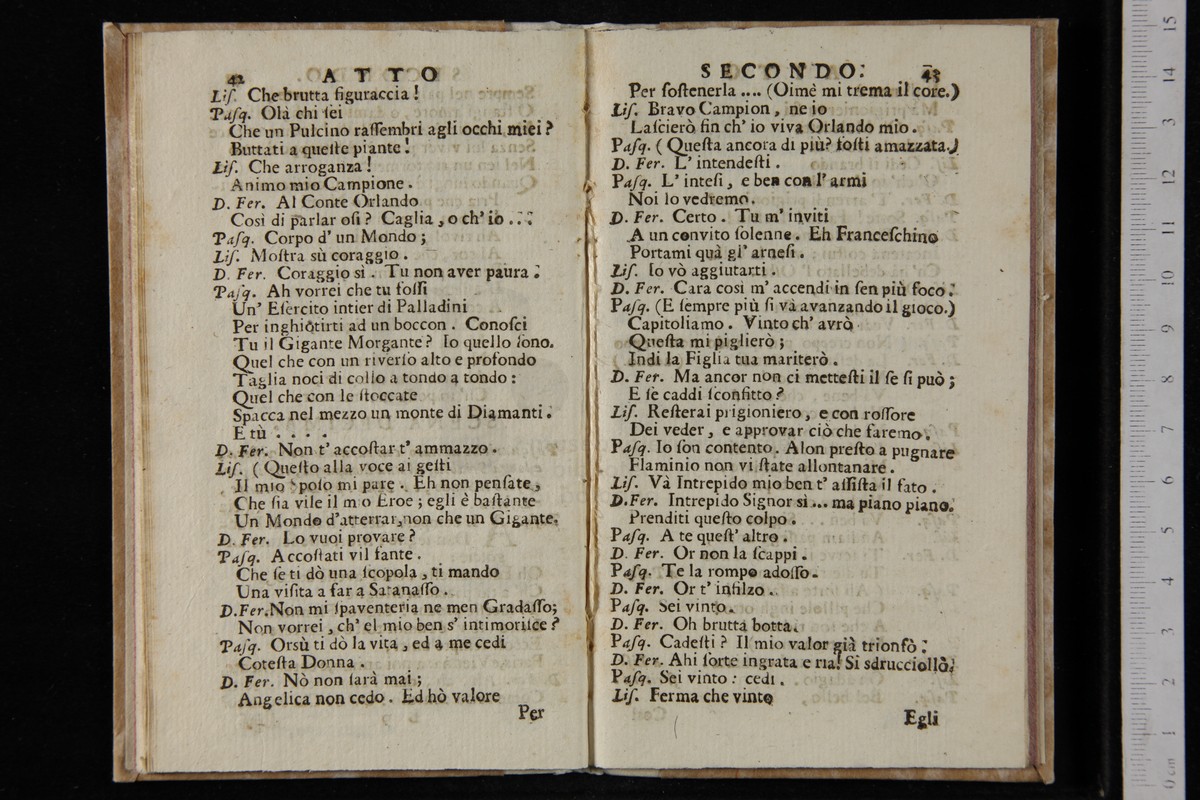 42 ATTO
Liſ. Che brutta figuraccia!
Paſq. Olà chi ſei
Che un Pulcino raſſembri agli occhi miei?
Buttati a queſte piante!
Liſ. Che arroganza!
Animo mio Campione.
D. Fer. Al Conte Orlando
Così di parlar oſi? Caglia, o ch' io ....
Paſq. Corpo d' un Mondo;
Liſ. Moſtra sù coraggio.
D. Fer. Coraggio sì. Tu non aver paura.
Paſq. Ah vorrei che tu foſſi
Un' Eſercito intier di Palladini
Per inghiòtirti ad un boccon. Conoſci
Tu il Gigante Morgante? Io quello ſono.
Quel che con un riverſo alto e profondo
Taglia noci di collo a tondo a tondo:
Quel che con le ſtoccate
Spacca nel mezzo un monte di Diamanti.
E tù ....
D. Fer. Non t' accoſtar t' ammazzo.
Liſ. (Queſto alla voce ai geſti
Il mio Spoſo mi pare. Eh non penſate,
Che ſia vile il mio Eroe; egli è baſtante
Un Mondo d'atterrar, non che un Gigante.
D. Fer. Lo vuoi provare?
Paſq. Accoſtati vil fante.
Che ſe ti dò una ſcopola, ti mando
Una viſita a far a Satanaſſo.
D. Fer. Non mi ſpaventeria ne men Gradaſſo;
Non vorrei, ch' el mio ben s' intimoriſce?
Paſq. Orsù ti dò la vita, ed a me cedi
Coteſta Donna.
D. Fer. Nò non ſarà mai;
Angelica non cedo. Ed hò valore
Per
SECONDO. 43
Per ſoſtenerla .... (Oimè mi trema il core.)
Liſ. Bravo Campion, ne io
Laſcierò fin ch' io viva Orlando mio.
Paſq. (Queſta ancora di più? foſti amazzata.)
D. Fer. L' intendeſti.
Paſq. L' inteſi, e ben con l' armi
Noi lo vedremo.
D. Fer. Certo. Tu m' inviti
A un convito ſolenne. Eh Franceſchino
Portami quà gl' arneſi.
Liſ. Io vò aggiutarti.
D. Fer. Cara cosi m' accendi in ſen più foco.
Paſq. (E ſempre più ſi và avanzando il gioco.)
Capitoliamo. Vinto ch' avrò
Queſta mi piglierò;
Indi la Figlia tua mariterò.
D. Fer. Ma ancor non ci metteſti il ſe ſi può;
E ſe caddi ſconfitto?
Liſ. Reſterai prigioniero, e con roſſore
Dei veder, e approvar ciò che faremo.
Paſq. Io ſon contento. Alon preſto a pugnare
Flaminio non vi ſtate allontanare.
Liſ. Và Intrepido mio ben t' aſſiſta il fato.
D. Fer. Intrepido Signor sì ... ma piano piano.
Prenditi queſto colpo.
Paſq. A te queſt' altro.
D. Fer. Or non la ſcappi.
Paſq. Te la rompo adoſſo.
D. Fer. Or t' infilzo.
Paſq. Sei vinto.
D. Fer. Oh brutta botta.
Paſq. Cadeſti? Il mio valor già trionfò.
D. Fer. Ahi ſorte ingrata e ria! Si sdrucciollò.
Paſq. Sei vinto: cedi.
Liſ. Ferma che vinto
Egli